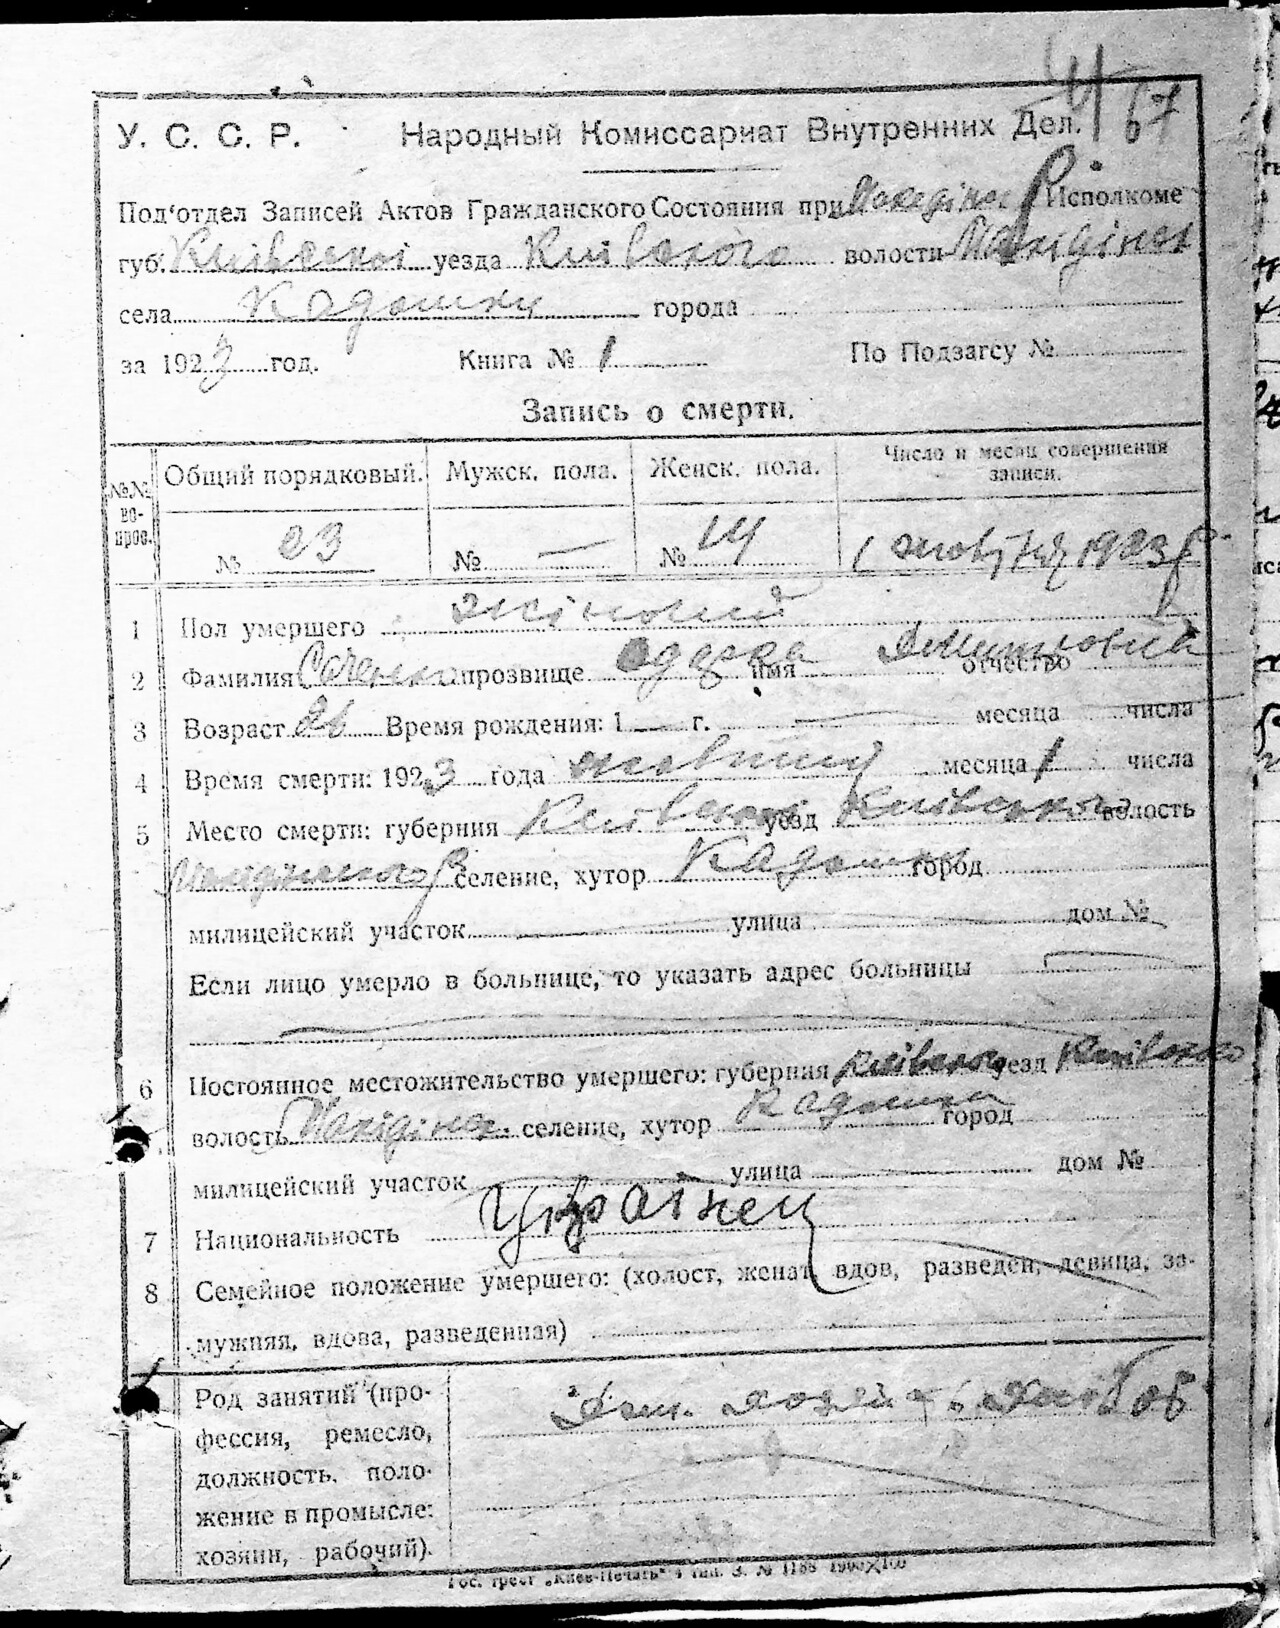 67
У. С. С. Р. Народный Комиссариат Внутренних Дел.
Под'отдел Записей Актов Гражданского Состояния при Исполкоме
губ. Київської уезда Київського волости
села Кадомки города
за 1923 год. Книга № 1 По Подзагсу №
Запись о смерти.
№№ вопрос. Общий порядковый. Мужск. пола. Женск. пола. Число и месяц совершения записи.
№ 23 № — № 14 1 жовтня 1923 р.
1 Пол умершего жіночий
2 Фамилия прозвище Одарка имя отчество
3 Возраст Время рождения: 1 — г. — месяца числа
4 Время смерти: 1923 года жовтня месяца 1 числа
5 Место смерти: губерния Київської уезд Київського волость
селение, хутор Кадомка город
милицейский участок улица дом №
Если лицо умерло в больнице, то указать адрес больницы
6 Постоянное местожительство умершего: губерния Київської уезд Київського
волость селение, хутор Кадомка город
милицейский участок улица дом №
7 Национальность Українец
8 Семейное положение умершего: (холост, женат, вдов, разведен, девица, за-
мужняя, вдова, разведенная)
Род занятий (про-
фессия, ремесло,
должность, поло-
жение в промысле:
хозяин, рабочий).
Гос. трест „Киев-Печать" 4 тип. З. № 1188 1000×100